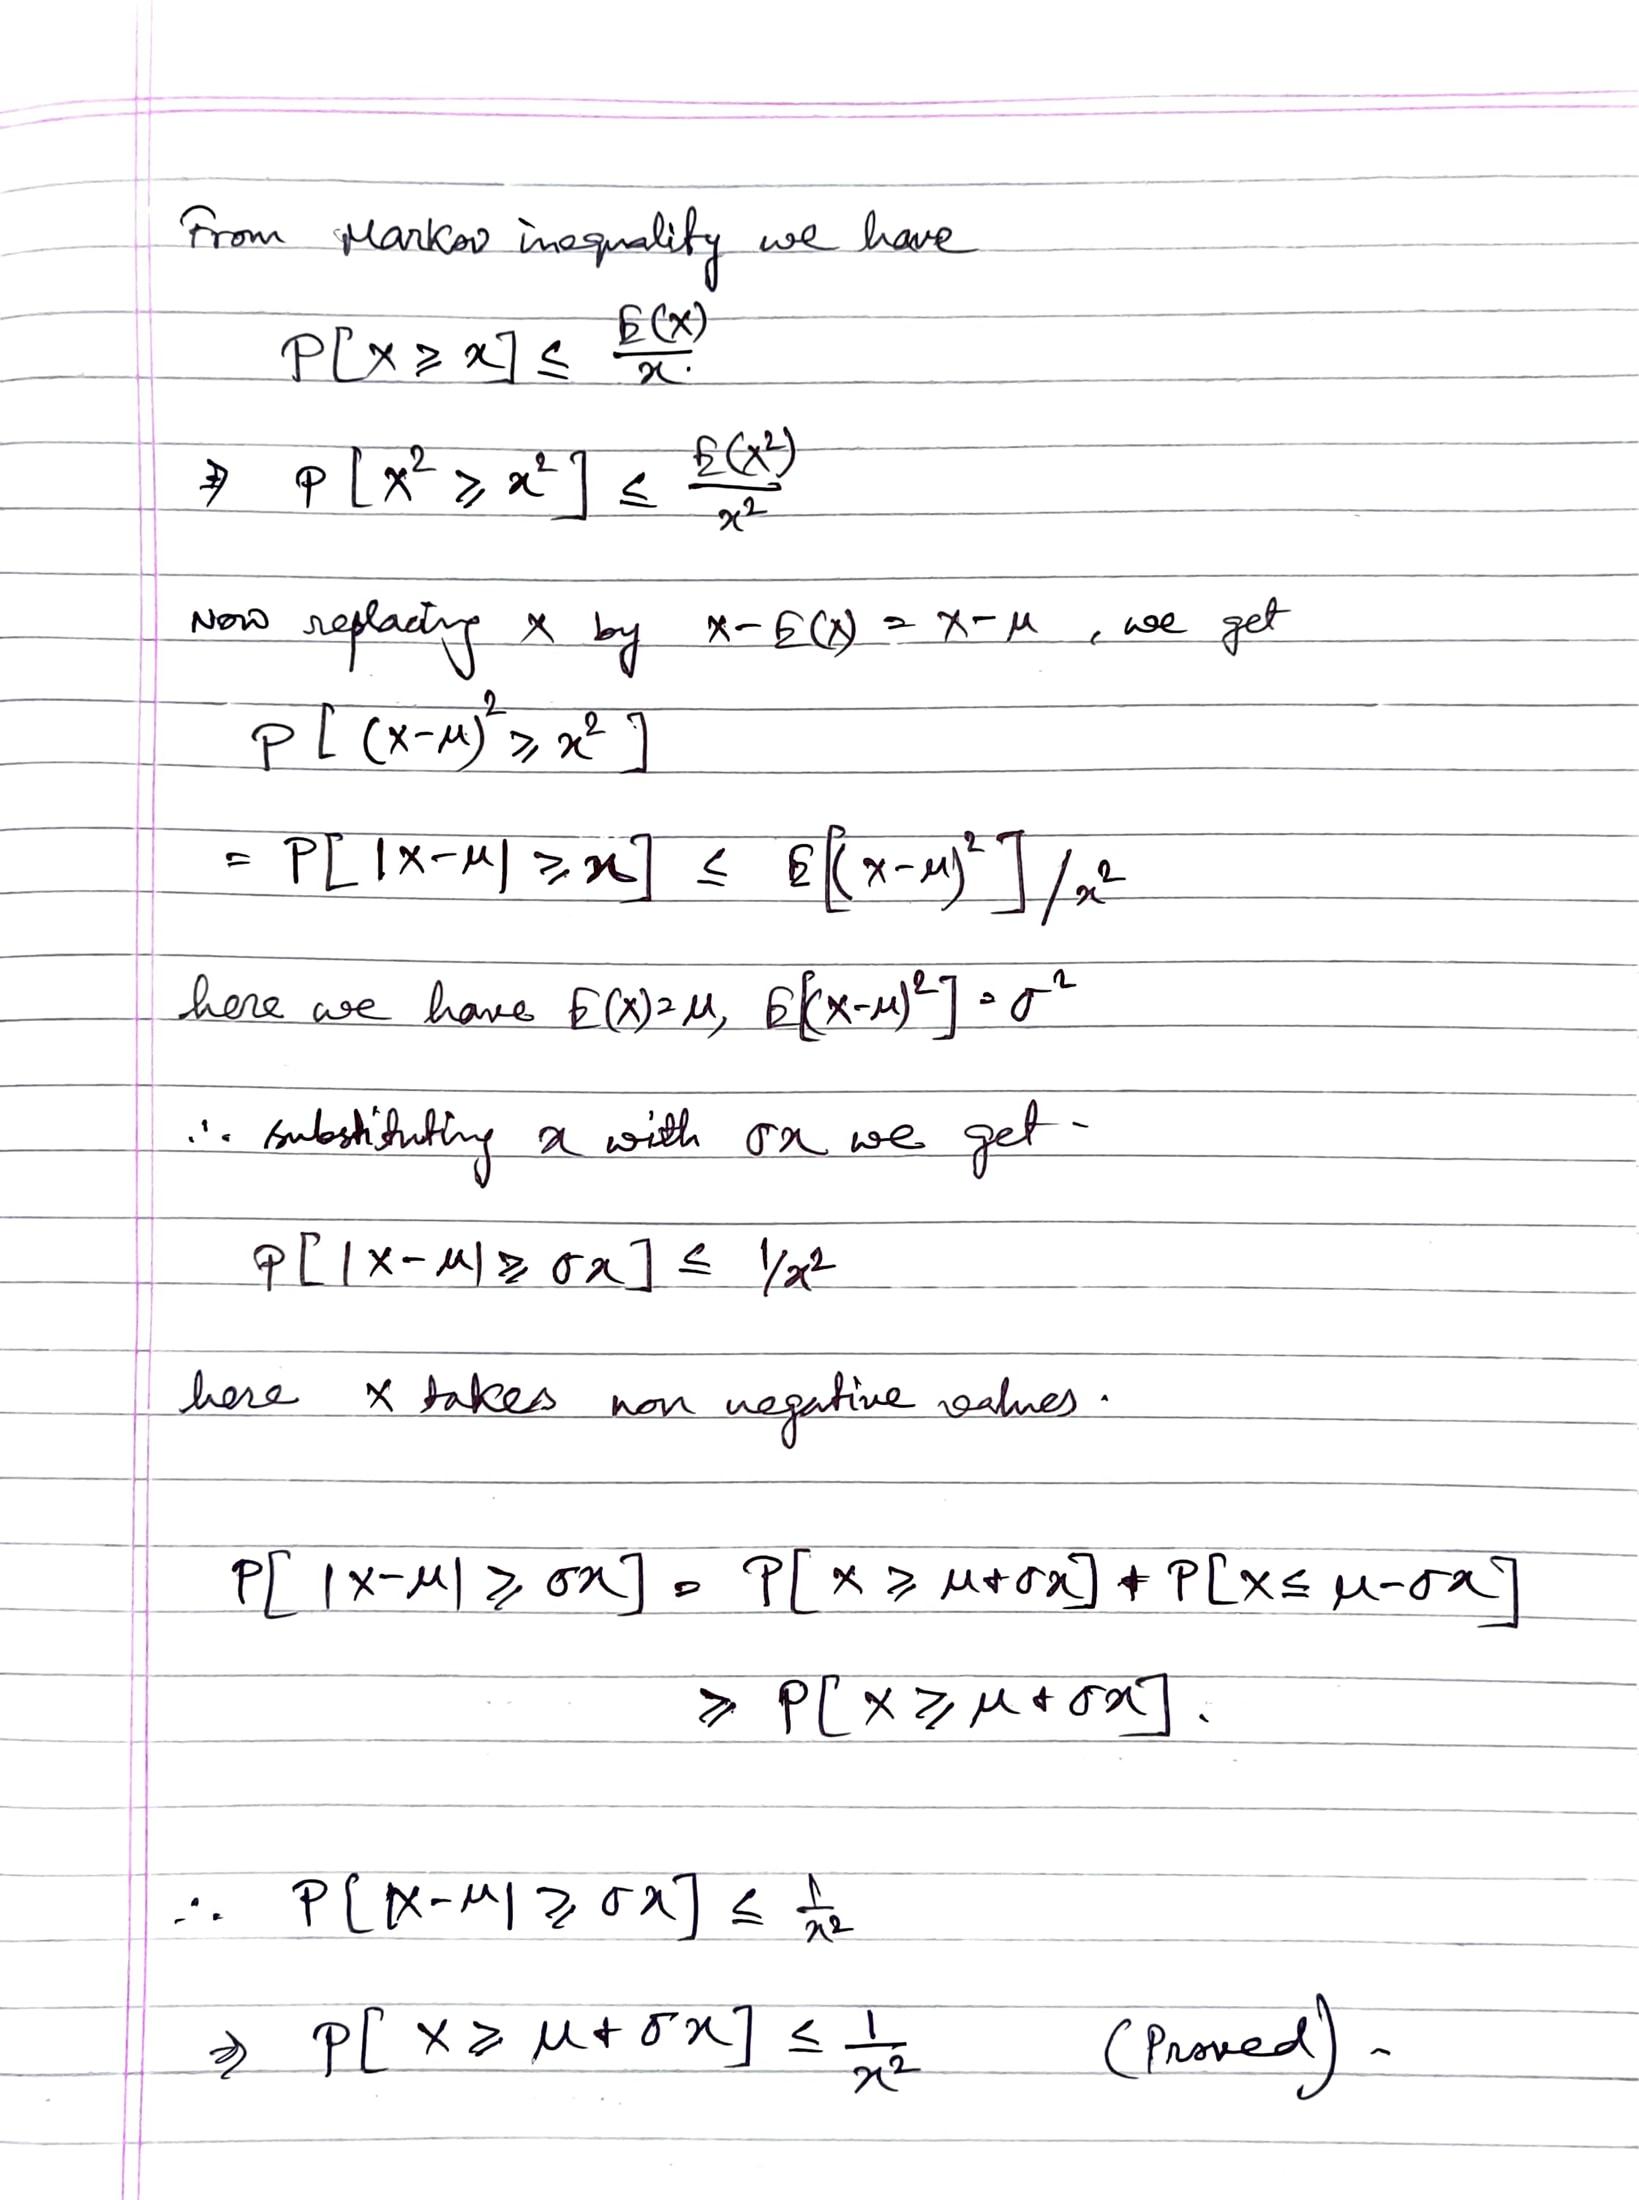 From Markov inequality we have
P[X ≥ x] ≤ E(X)/x.
⇒ P[X² ≥ x²] ≤ E(X²)/x²
Now replacing X by X-E(X) = X-μ, we get
P[(X-μ)² ≥ x²]
= P[|X-μ| ≥ x] ≤ E[(X-μ)²]/x²
here we have E(X)=μ, E[(X-μ)²] = σ²
∴ substituting x with σx we get -
P[|X-μ| ≥ σx] ≤ 1/x²
here X takes non negative values.
P[|X-μ| ≥ σx] = P[X ≥ μ+σx] + P[X ≤ μ-σx]
≥ P[X ≥ μ+σx].
∴ P[|X-μ| ≥ σx] ≤ 1/x²
⇒ P[X ≥ μ+σx] ≤ 1/x² (Proved) -